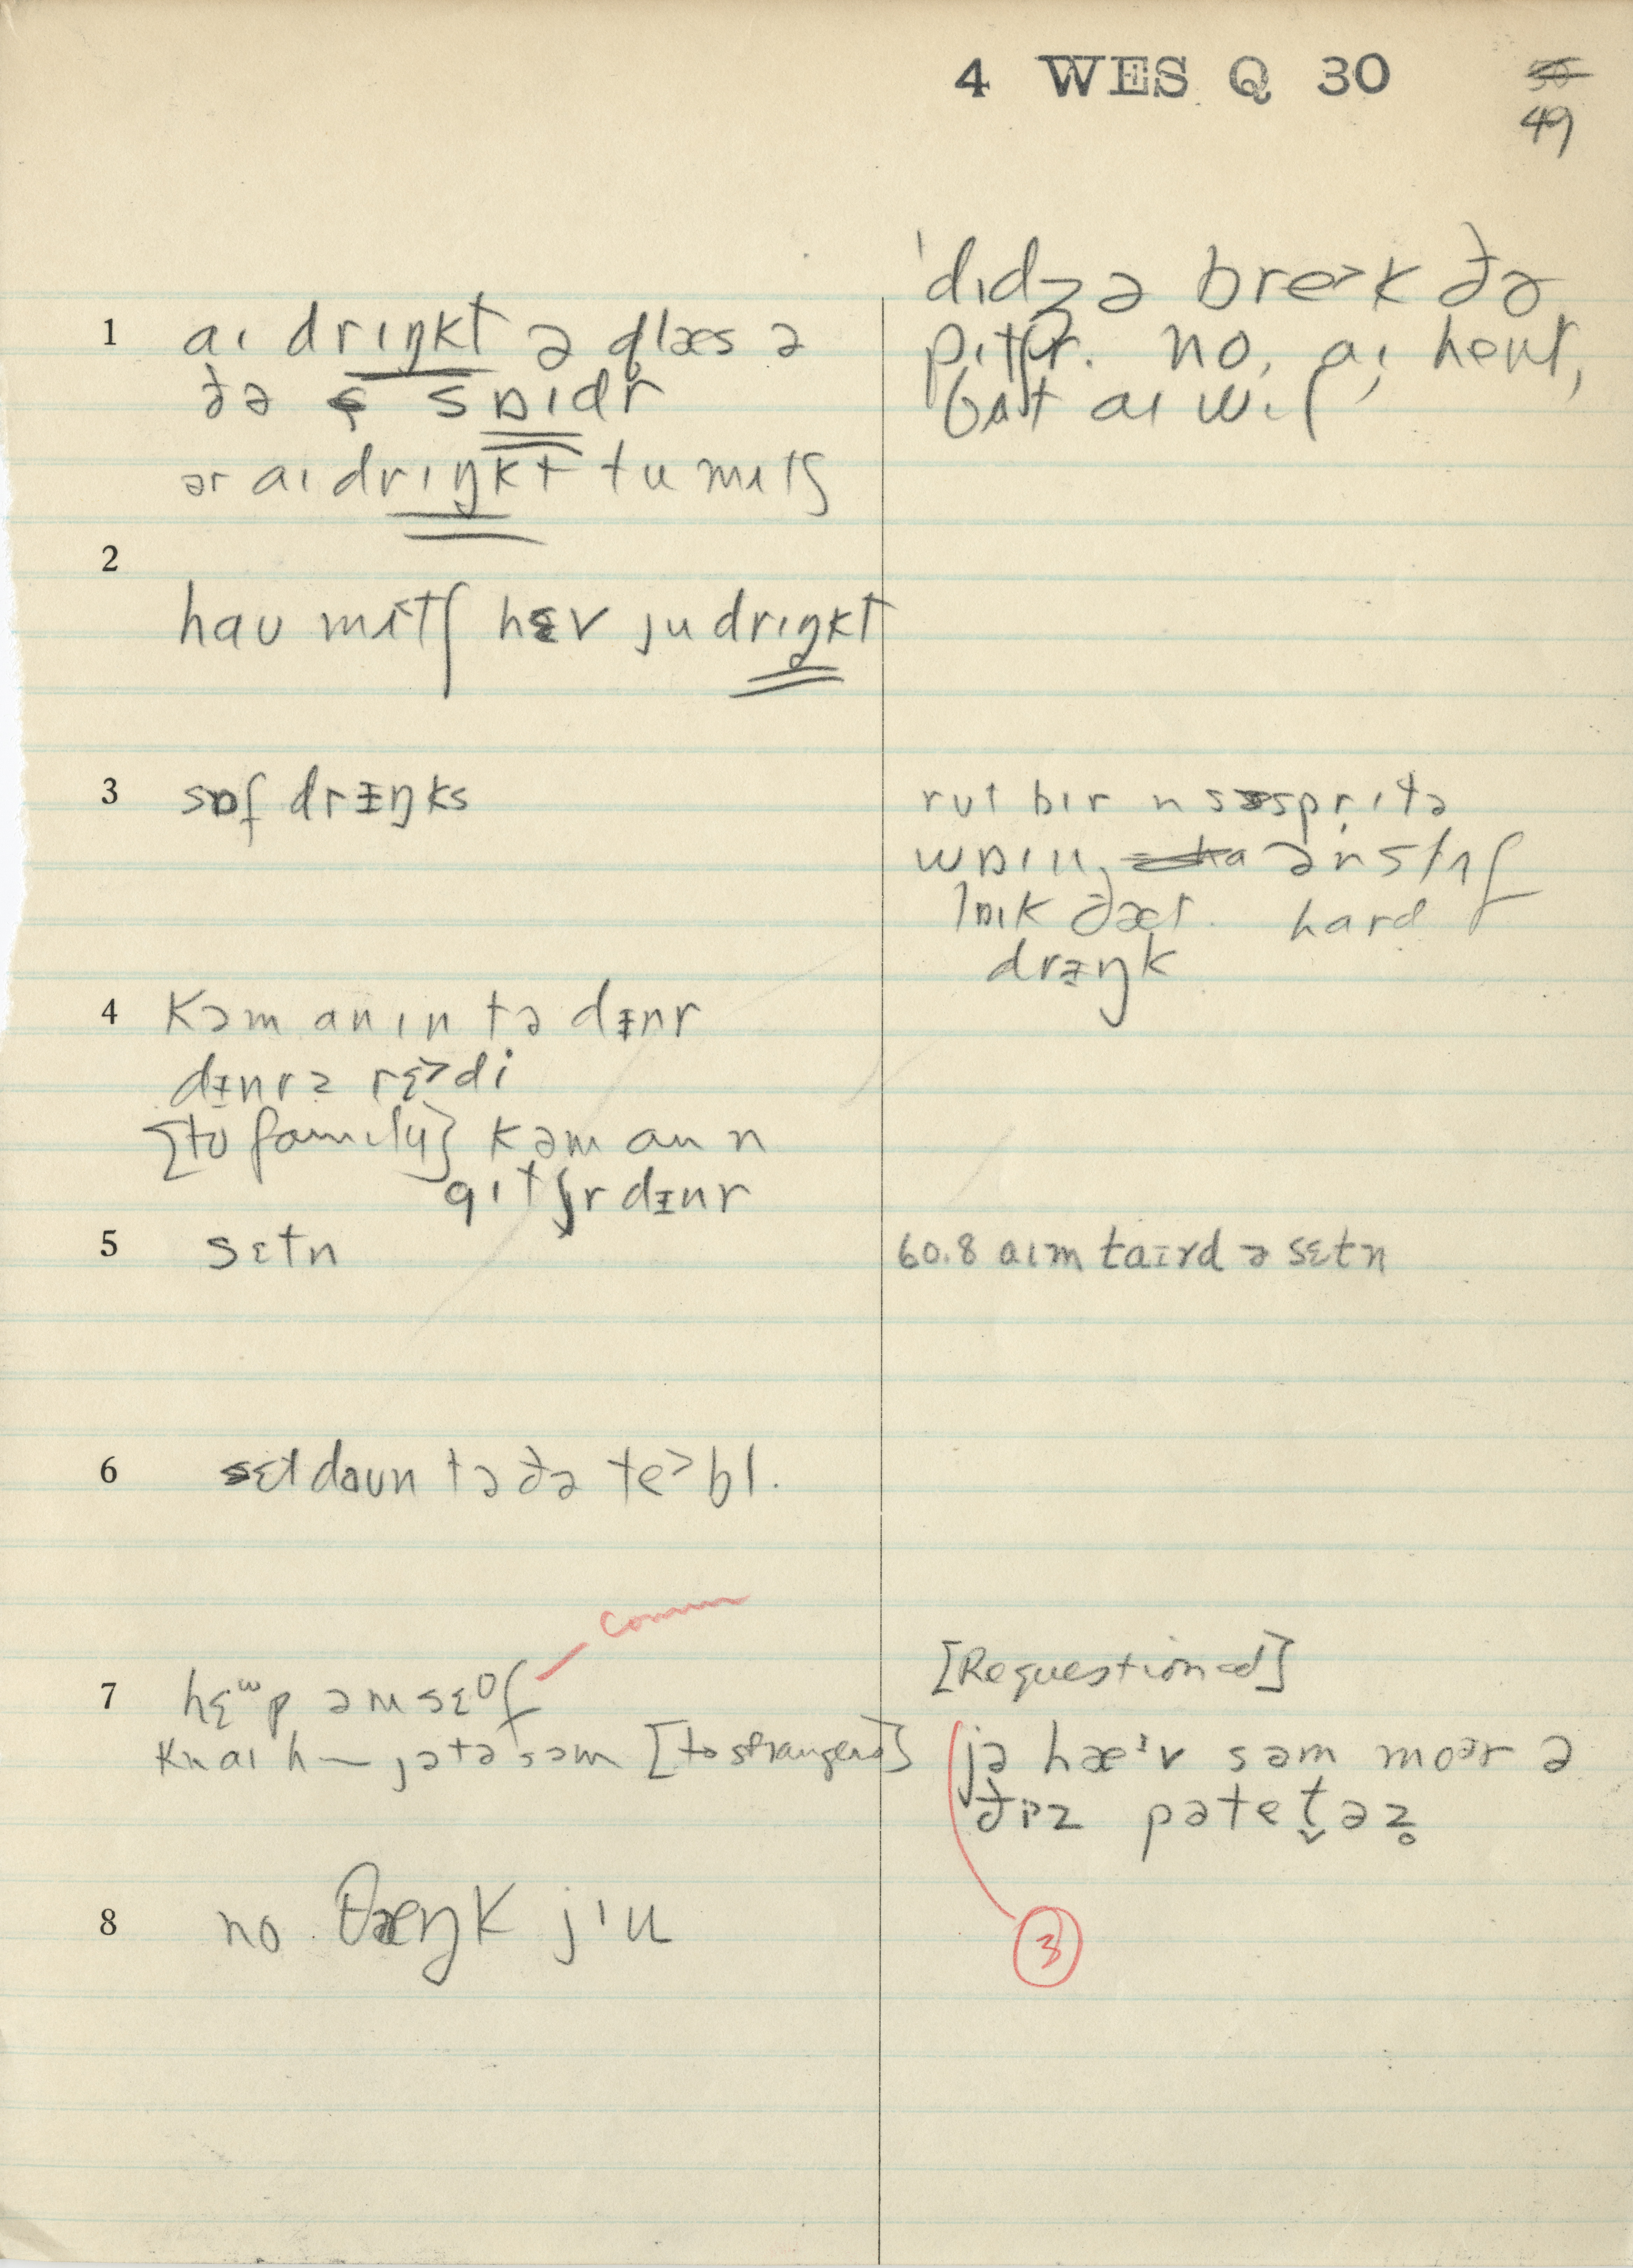 4 WES Q 30
50
49
1 aɪ drɪŋkt ə glæs ə
ðə sɒɪdr
ər aɪ drɪŋkt tu mʌtʃ
ˈdɪdʒə bre˃k ðə
pɪtʃr. no, aɪ
bʌt aɪ wɪʃ
2
haʊ mʌtʃ hɛv ju drɪŋkt
3 sɒf drɪŋks
rut bɪr n
ən stʌf
lɒɪk ðæt. hard
drɪŋk
4 kəm ɑn ɪn tə dɪnr
dɪnrz rɛ˃di
[to family] kəm ɑn n
gɪtʃr dɪnr
5 sɛtn
60.8 aɪm taɪrd ə sɛtn
6 sɛt daʊn tə ðə te˃bl.
7 əmsɛof
comm
kn aɪ h— jə tə səm [to strangers]
[Requestioned]
jə hæˈv səm moər ə
ðɪz pəteṱəz̥
3
8 no θæŋk jˈu